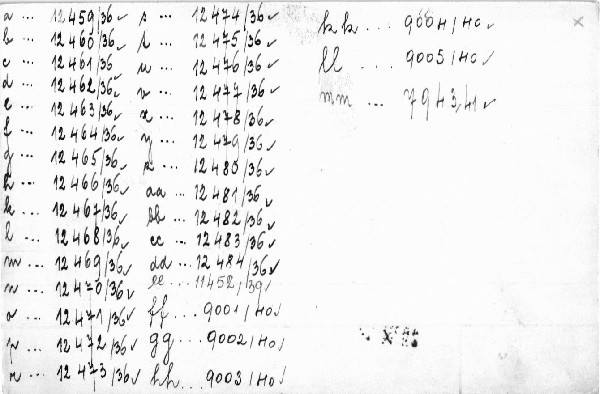 a ... 12459/36✓
b ... 12460/36✓
c ... 12461/36
d ... 12462/36✓
e ... 12463/36✓
f ... 12464/36✓
g ... 12465/36✓
h ... 12466/36✓
k ... 12467/36✓
l ... 12468/36✓
m ... 12469/36✓
n ... 12470/36✓
o ... 12471/36✓
p ... 12472/36✓
r ... 12473/36✓
s ... 12474/36✓
t ... 12475/36✓
u ... 12476/36✓
v ... 12477/36✓
x ... 12478/36✓
y ... 12479/36✓
z ... 12480/36✓
aa ... 12481/36✓
bb ... 12482/36✓
cc ... 12483/36✓
dd ... 12484/36✓
ee ... 11452/39✓
ff ... 9001/40✓
gg ... 9002/40✓
hh ... 9003/40✓
kk ... 9004/40✓
ll ... 9005/40✓
mm ... 7943/41✓
×